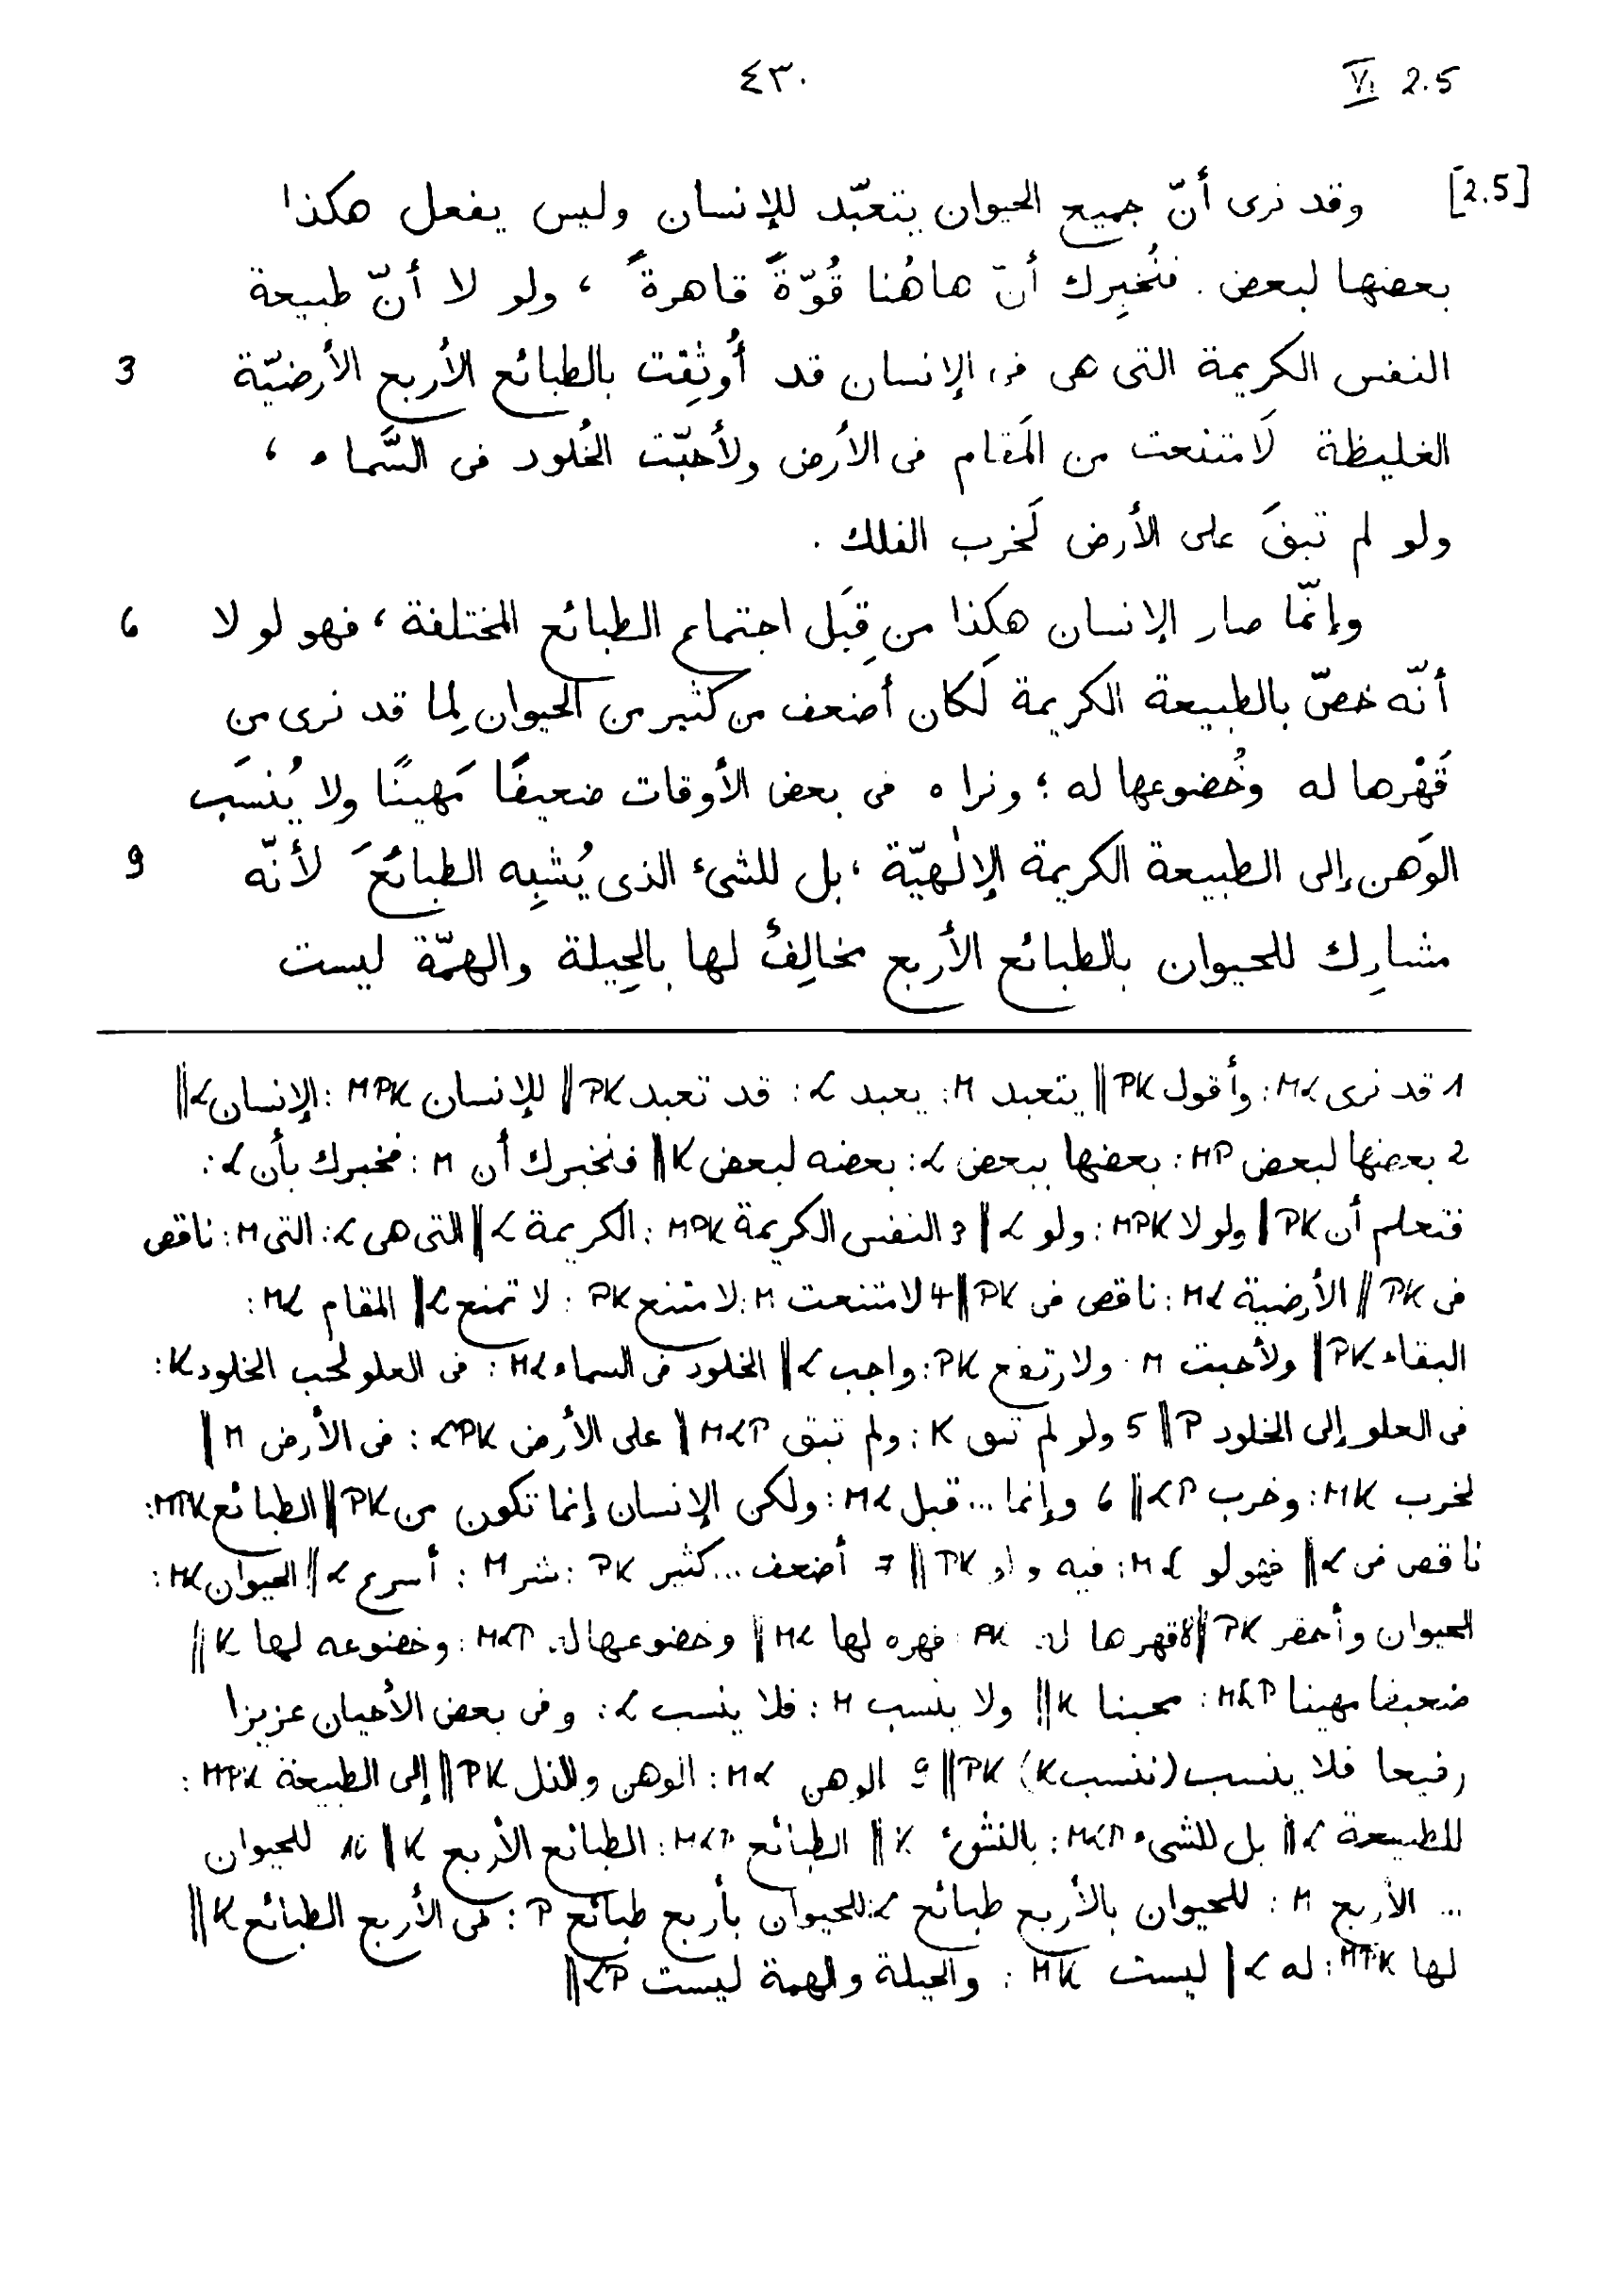 ٤٣٠ VI 2.5
[2.5] وقد نرى أنّ جميع الحيوان يتعبّد للإنسان وليس يفعل هكذا
بعضها لبعض . فنُخبِرك أنّ هاهُنا قُوّةً قاهرةً ، ولو لا أنّ طبيعة
النفس الكريمة التى هى فى الإنسان قد أُوثِقت بالطبائع الأربع الأرضيّة 3
الغليظة لَامتنعت من المَقام فى الأرض ولأحبّت الخُلود فى السَّماء ،
ولو لم تبقَ على الأرض لَخرب الفلك .
وإنّما صار الإنسان هكذا من قِبَل اجتماع الطبائع المختلفة ، فهو لو لا 6
أنّه خصّ بالطبيعة الكريمة لَكان أضعف من كثير من الحيوان لِما قد نرى من
قَهْرها له وخُضوعها له ؛ ونراه فى بعض الأوقات ضعيفًا مَهينًا ولا يُنسَب
الوَهن إلى الطبيعة الكريمة الإلٰهيّة ، بل للشىء الذى يُشبِه الطبائعَ لأنّه 9
مشارِك للحيوان بالطبائع الأربع مخالِفٌ لها بالحِيلة والهمّة ليست
1 قد نرى Mα : وأقول PK || يتعبد M : يعبد α : قد تعبد PK || للإنسان MPK : الإنسان α ||
2 بعضها لبعض MP : بعضها ببعض α : بعضه لبعض K || فنخبرك أن M : فمخبرك بأن α :
فتعلم أن PK || ولولا MPK : ولو α || 3 النفس الكريمة MPK : الكريمة α || التى هى α : التى M : ناقص
فى PK || الأرضية Mα : ناقص فى PK || 4 لامتنعت M : لامتنع PK : لا تمنع α || المقام Mα :
البقاء PK || ولأحبت M : ولارتفع PK : واجب α || الخلود فى السماء Mα : فى العلو لحب الخلود K :
فى العلو إلى الخلود P || 5 ولو لم تبق K : ولم تبق MαP || على الأرض αPK : فى الأرض M ||
لخرب MK : وخرب αP || 6 وإنما ... قبل Mα : ولكن الإنسان إنما تكون من PK || الطبائع MPK :
ناقص فى α || فهو لو Mα : فيه ولو PK || 7 أضعف ... كثير PK : شر M : أسرع α || الحيوان Mα :
الحيوان وأحقر PK || 8 قهرها له PK : قهره لها Mα || وخضوعها له MαP : وخضوعه لها K ||
ضعيفا مهينا MαP : K || ولا ينسب M : فلا ينسب α : وفى بعض الأحيان عزيزا
رفيعا فلا ينسب (ننسب K) PK || 9 الوهن Mα : الوهن والذل PK || إلى الطبيعة MPK :
للطبيعة α || بل للشىء MαP : بالنشىء K || الطبائع MαP : الطبائع الأربع K || 10 للحيوان
... الأربع M : للحيوان بالأربع طبائع α : للحيوان بأربع طبائع P : فى الأربع الطبائع K ||
لها MPK : له α || ليست MK : والحيلة والهمة ليست αP ||